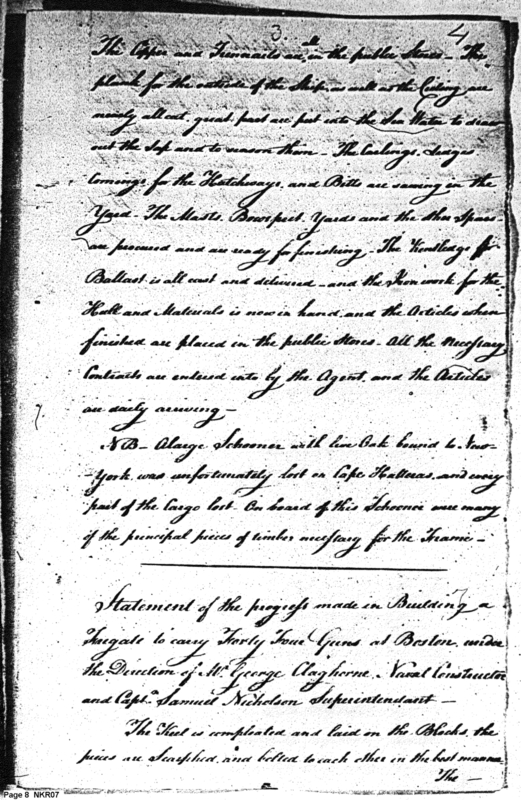 3 4
The Copper and Trunnails are all in the public Stores – The
plank for the outside of the Ship, as well as the Ceiling are
nearly all cut, great part are put into the Sea Water to draw
out the Sap and to season them – The Carlings, Ledges
Comings for the Hatchways, and Bitts are sawing in the
Yard – The Masts, Bowsprit, Yards and the other Spars
are procured and are ready for finishing – The Kentledge for
Ballast is all cast and delivered – and the Iron work for the
Hull and Materials is now in hand, and the Articles when
finished are placed in the public Stores – All the necessary
Contracts are entered into by the Agent, and the Articles
are daily arriving –
NB – A large Schooner with live Oak bound to New-
-York, was unfortunately lost on Cape Hatteras, and every
part of the Cargo lost. On board of this Schooner were many
of the principal pieces of timber necessary for the Frame –
Statement of the progress made in Building a
Frigate to carry Forty Four Guns at Boston, under
the Direction of Mr. George Claghorne, Naval Constructor
and Capt.n Samuel Nicholson Superintendant –
The Keel is compleated and laid on the Blocks, the
pieces are Scarphed, and bolted to each other in the best manner
The –
Page 8 NKR07